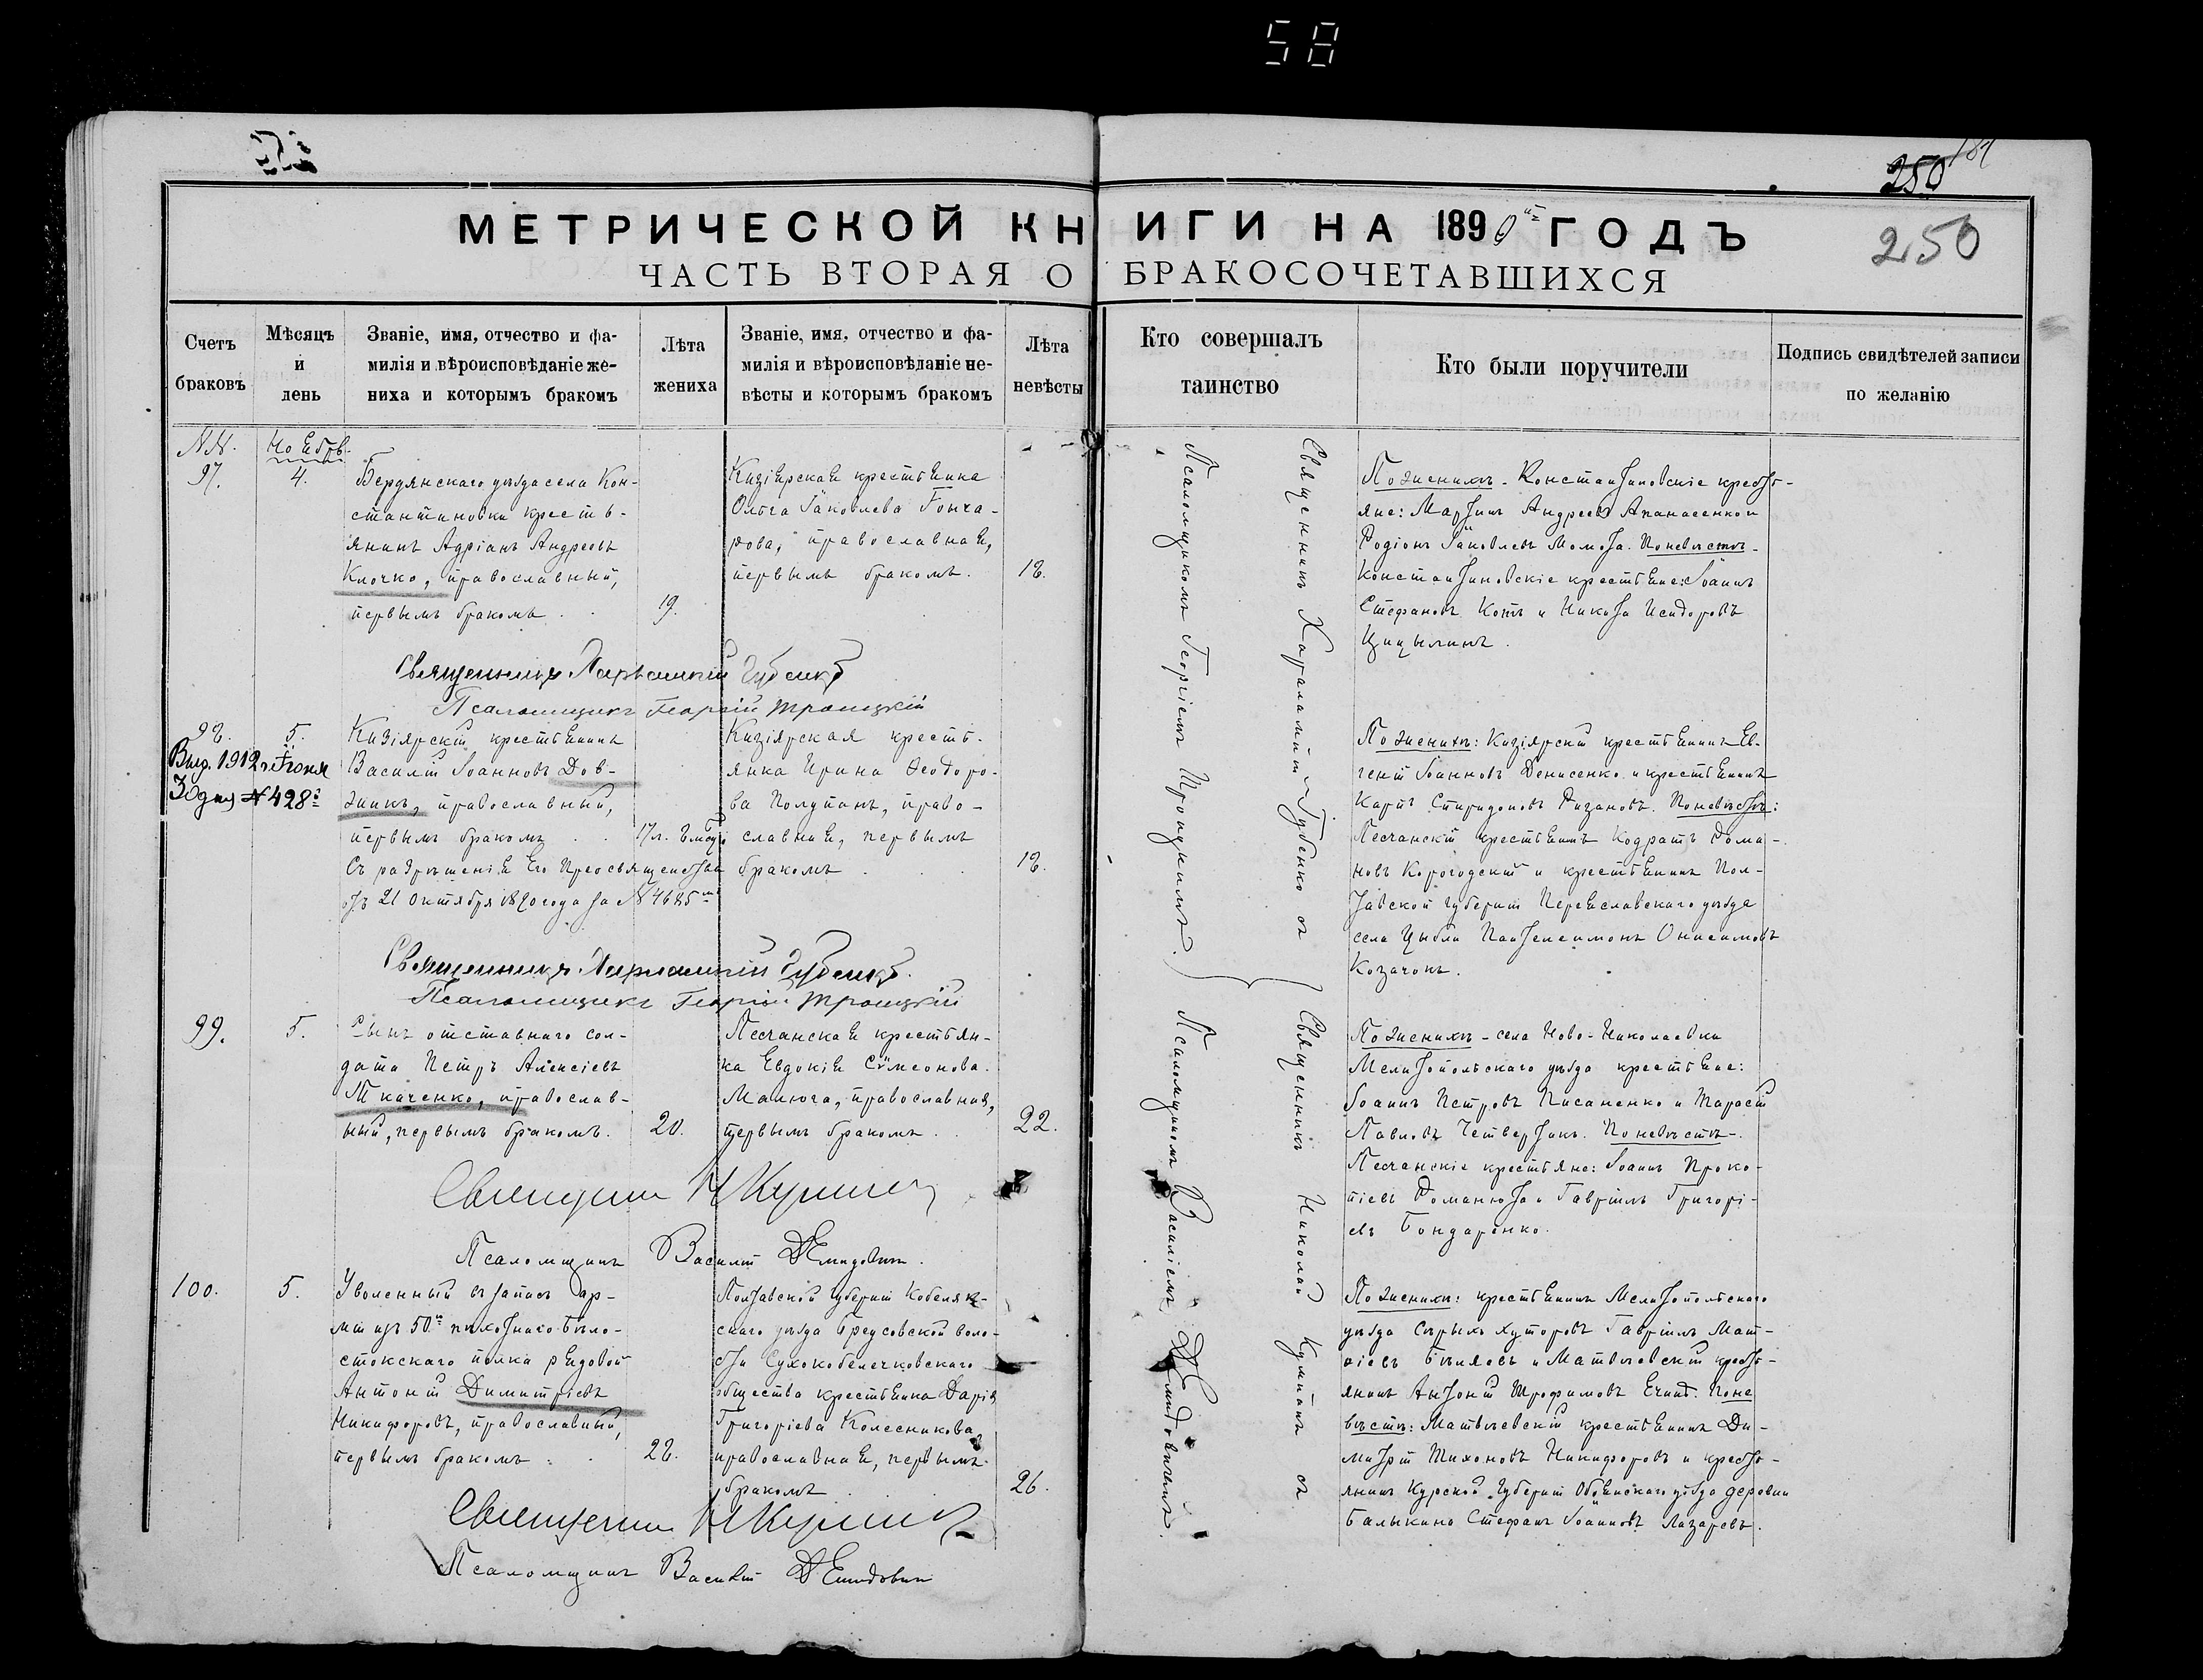 58
250
МЕТРИЧЕСКОЙ КНИГИ НА 1890й ГОДЪ
250
ЧАСТЬ ВТОРАЯ О БРАКОСОЧЕТАВШИХСЯ
Счетъ браковъ
Мѣсяцъ и день
Званіе, имя, отчество и фа-
милія и вѣроисповѣданіе же-
ниха и которымъ бракомъ
Лѣта жениха
Званіе, имя, отчество и фа-
милія и вѣроисповѣданіе не-
вѣсты и которымъ бракомъ
Лѣта невѣсты
Кто совершалъ таинство
Кто были поручители
Подпись свидѣтелей записи
по желанію
97.
4.
Бердянскаго уѣзда села Кон-
стантиновки кресть-
янинъ Адріанъ Андреевъ
Клочко, православный,
первымъ бракомъ
19.
Кизіярская крестьянка
Ольга Іаковлева Гонча-
рова, православная,
первымъ бракомъ.
18.
По женихѣ - Константиновскіе кресть-
яне: Мартинъ Андреевъ Апанасенко и
Родіонъ Іаковлевъ Момота. По невѣстѣ -
Константиновскіе крестьяне: Іоаннъ
Стефановъ Котъ и Никита Исидоровъ
Цицылинъ.
Священникъ Харлампій Губенко
Псаломщикъ Георгій Троицкій
98.
5.
Выд. 1912 г. Іюня
30 дня № 428й
Кизіярскій крестьянинъ
Василій Іоанновъ Дов-
жикъ, православный,
первымъ бракомъ
Съ разрѣшенія Его Преосвященства
отъ 21 октября 1890 года за № 4685мъ
Кизіярская кресть-
янка Ирина Ѳеодоро-
ва Полупанъ, право-
славная, первымъ
бракомъ
18.
По женихѣ: Кизіярскій крестьянинъ Ев-
геній Іоанновъ Денисенко и крестьянинъ
Карпъ Спиридоновъ Рязановъ. По невѣстѣ:
Песчанскій крестьянинъ Кодратъ Рома-
новъ Корогодскій и крестьянинъ Пол-
тавской губерніи Переяславскаго уѣзда
села Цыбли Пантелеимонъ Онисимовъ
Козачокъ.
Священникъ Харлампій Губенко
Псаломщикъ Георгій Троицкій
Священникъ Харалампій Губенко съ
Псаломщикомъ Георгіемъ Троицкимъ.
99.
5.
Сынъ отставнаго сол-
дата Петръ Алексіевъ
Ткаченко, православ-
ный, первымъ бракомъ.
20.
Песчанская крестьян-
ка Евдокія Сѵмеонова
Малюга, православная,
первымъ бракомъ
22.
По женихѣ - села Ново-Николаевки
Мелитопольскаго уѣзда крестьяне:
Іоаннъ Петровъ Писаненко и Тарасій
Павловъ Четвертакъ. По невѣстѣ -
Песчанскіе крестьяне: Іоаннъ Проко-
піевъ Романюта и Гавріилъ Григорі-
евъ Бондаренко.
Псаломщикъ Василій Демидовичъ
100.
5.
Уволенный въ запасъ ар-
міи изъ 50го пѣхотнаго Бѣло-
стокскаго полка рядовой
Антоній Димитріевъ
Никифоровъ, православный,
первымъ бракомъ
28.
Полтавской губерніи Кобеляк-
скаго уѣзда Бреусовской воло-
сти Сухокобелечковскаго
общества крестьянка Дарія
Григоріева Колесникова,
православная, первымъ
бракомъ
26.
По женихѣ: крестьянинъ Мелитопольскаго
уѣзда Сѣрыхъ хуторовъ Гавріилъ Мат-
ѳіевъ Бѣляевъ и Матвѣевскій кресть-
янинъ Антоній Трофимовъ По не
вѣстѣ: Матвѣевскій крестьянинъ Ди-
митрій Тихоновъ Никифоровъ и кресть-
янинъ Курской губерніи Обоянскаго уѣзда деревни
Балыкина Стефанъ Іоанновъ Лазаревъ.
Псаломщикъ Василій Демидовичъ
Священникъ Николай съ
Псаломщикомъ Василіемъ Демидовичемъ.